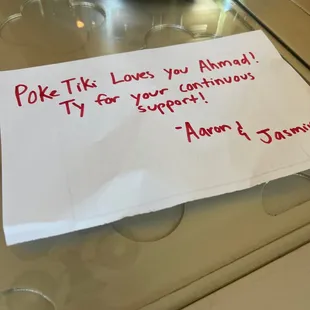 Poke Tiki Loves you Ahmad!
Ty for your continuous
support!
-Aaron & Jasmin